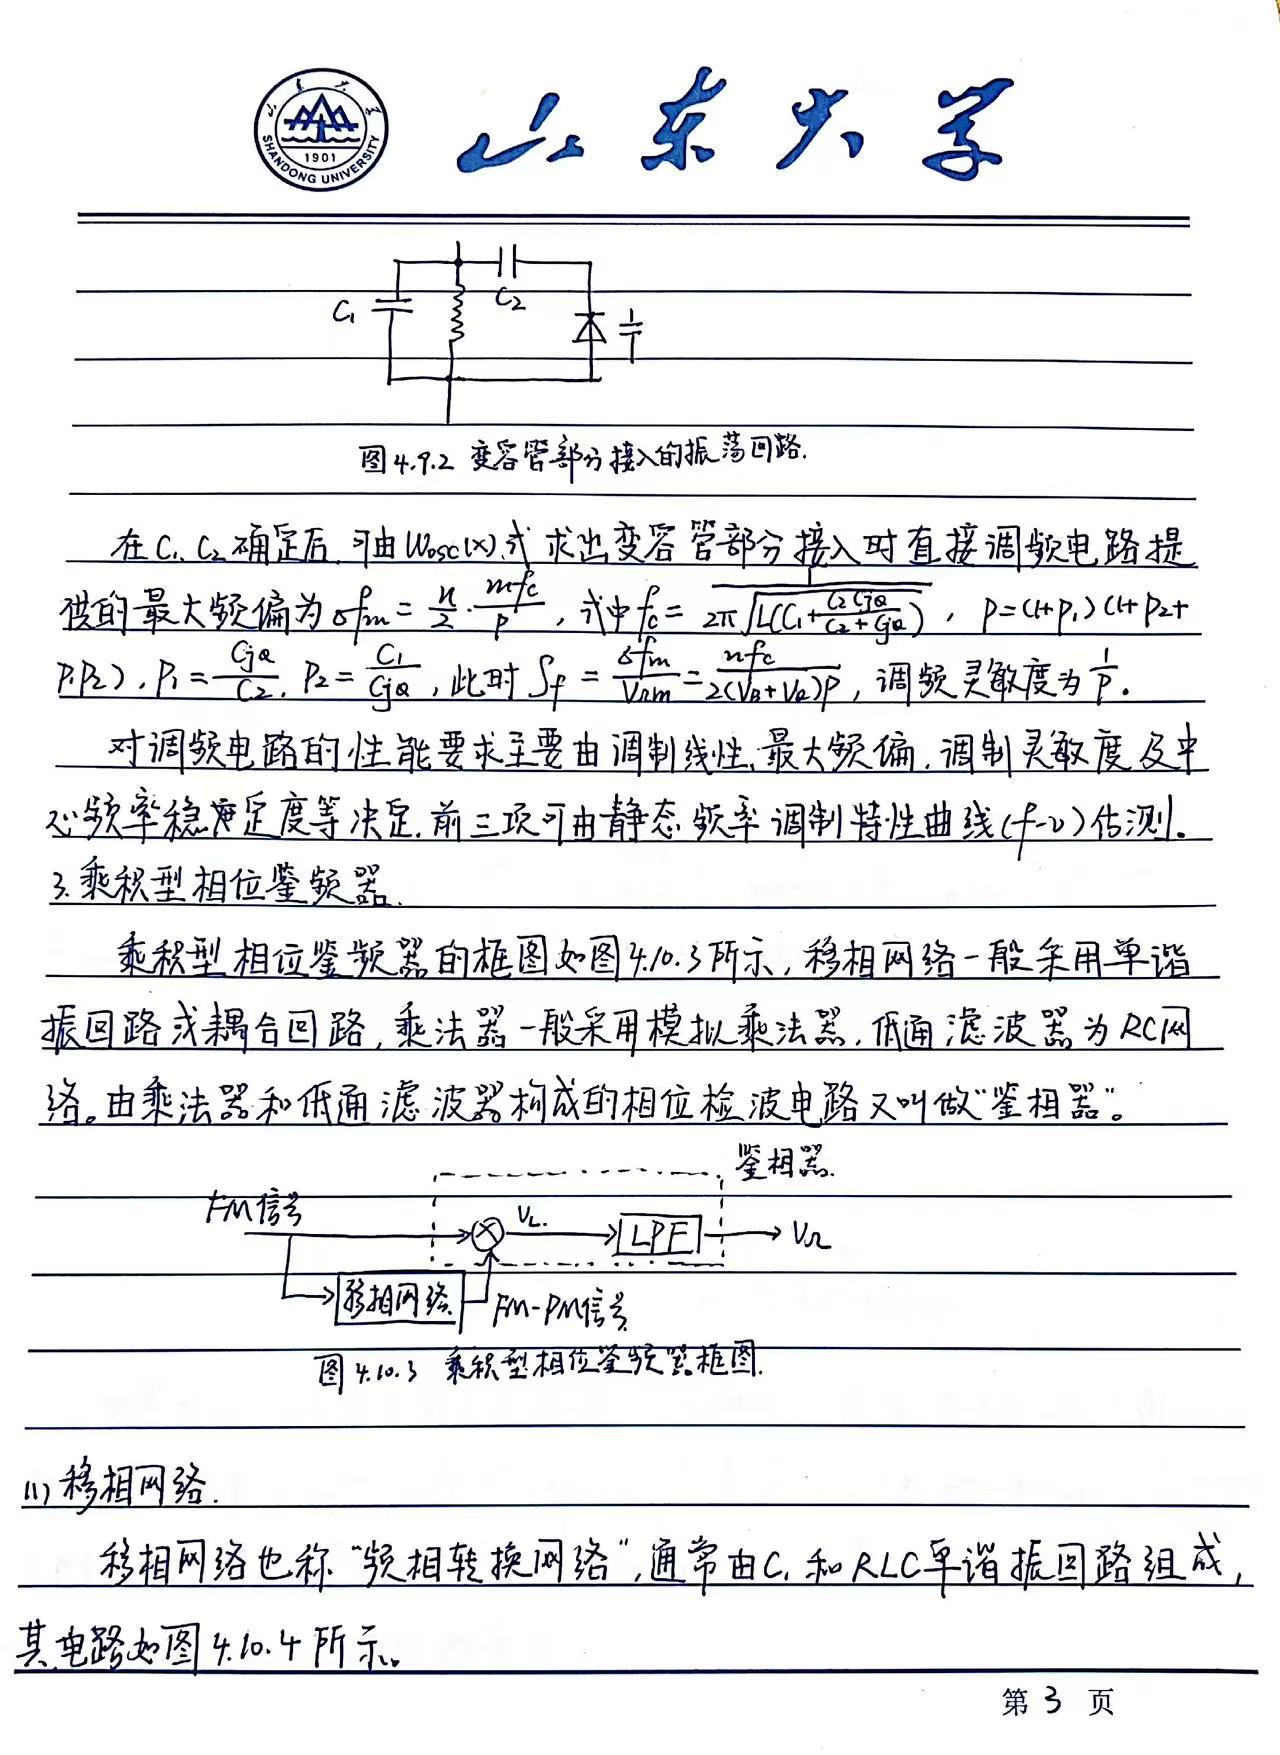 山东大学
1901
SHANDONG UNIVERSITY
C₁
C₂
图4.9.2 变容管部分接入的振荡回路.
在C₁、C₂确定后,可由Wosc(x)式求出变容管部分接入时直接调频电路提
供的最大频偏为δfm = n/2 · mfc/P, 式中fc = 1/(2π√(L(C₁+C₂CjQ/(C₂+CjQ)))), P=(1+P₁)(1+P₂+
P₁P₂), P₁ = CjQ/C₂, P₂ = C₁/CjQ, 此时Sf = δfm/VΩm = nfc/(2(VB+VQ)P), 调频灵敏度为1/P。
对调频电路的性能要求主要由调制线性、最大频偏、调制灵敏度及中
心频率稳定度等决定,前三项可由静态频率调制特性曲线(f-v)估测。
3.乘积型相位鉴频器.
乘积型相位鉴频器的框图如图4.10.3所示,移相网络一般采用单谐
振回路或耦合回路,乘法器一般采用模拟乘法器,低通滤波器为RC网
络。由乘法器和低通滤波器构成的相位检波电路又叫做“鉴相器”。
鉴相器.
FM信号
VL.
LPF
VΩ
移相网络
FM-PM信号
图4.10.3 乘积型相位鉴频器框图.
(1)移相网络.
移相网络也称“频相转换网络”,通常由C₁和RLC单谐振回路组成,
其电路如图4.10.4所示。
第3页